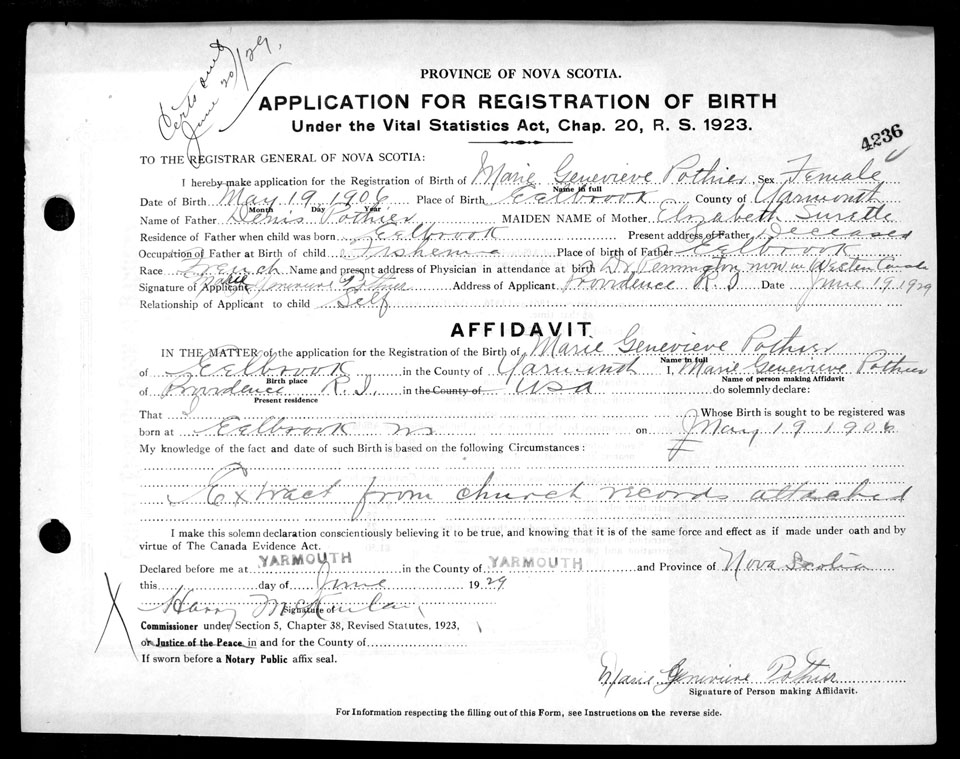 Certs and
June 20/29.
PROVINCE OF NOVA SCOTIA.
APPLICATION FOR REGISTRATION OF BIRTH
Under the Vital Statistics Act, Chap. 20, R. S. 1923.
4236
TO THE REGISTRAR GENERAL OF NOVA SCOTIA:
I hereby make application for the Registration of Birth of Marie Genevieve Pothier Sex Female
Name in full
Date of Birth May 19 1906 Place of Birth Eelbrook County of Yarmouth
Month Day Year
Name of Father Denis Pothier MAIDEN NAME of Mother Elizabeth Surette
Residence of Father when child was born Eelbrook Present address of Father Deceased
Occupation of Father at Birth of child Fisherman Place of birth of Father Eelbrook
Race French Name and present address of Physician in attendance at birth Dr Pennington now in Western Canada
Signature of Applicant Marie Genevieve Pothier Address of Applicant Providence R I Date June 19 1929
Relationship of Applicant to child Self
AFFIDAVIT
IN THE MATTER of the application for the Registration of the Birth of Marie Genevieve Pothier
Name in full
of Eelbrook in the County of Yarmouth I, Marie Genevieve Pothier
Birth place Name of person making Affidavit
of Providence R. I. in the County of USA do solemnly declare:
Present residence
That I Whose Birth is sought to be registered was
born at Eelbrook NS on May 19 1906
My knowledge of the fact and date of such Birth is based on the following Circumstances:
Extract from church records attached
I make this solemn declaration conscientiously believing it to be true, and knowing that it is of the same force and effect as if made under oath and by
virtue of The Canada Evidence Act.
Declared before me at YARMOUTH in the County of YARMOUTH and Province of Nova Scotia
this day of June 1929
Harry
Signature of
Commissioner under Section 5, Chapter 38, Revised Statutes, 1923,
X
or Justice of the Peace in and for the County of
If sworn before a Notary Public affix seal.
Marie Genevieve Pothier
Signature of Person making Affidavit.
For Information respecting the filling out of this Form, see Instructions on the reverse side.